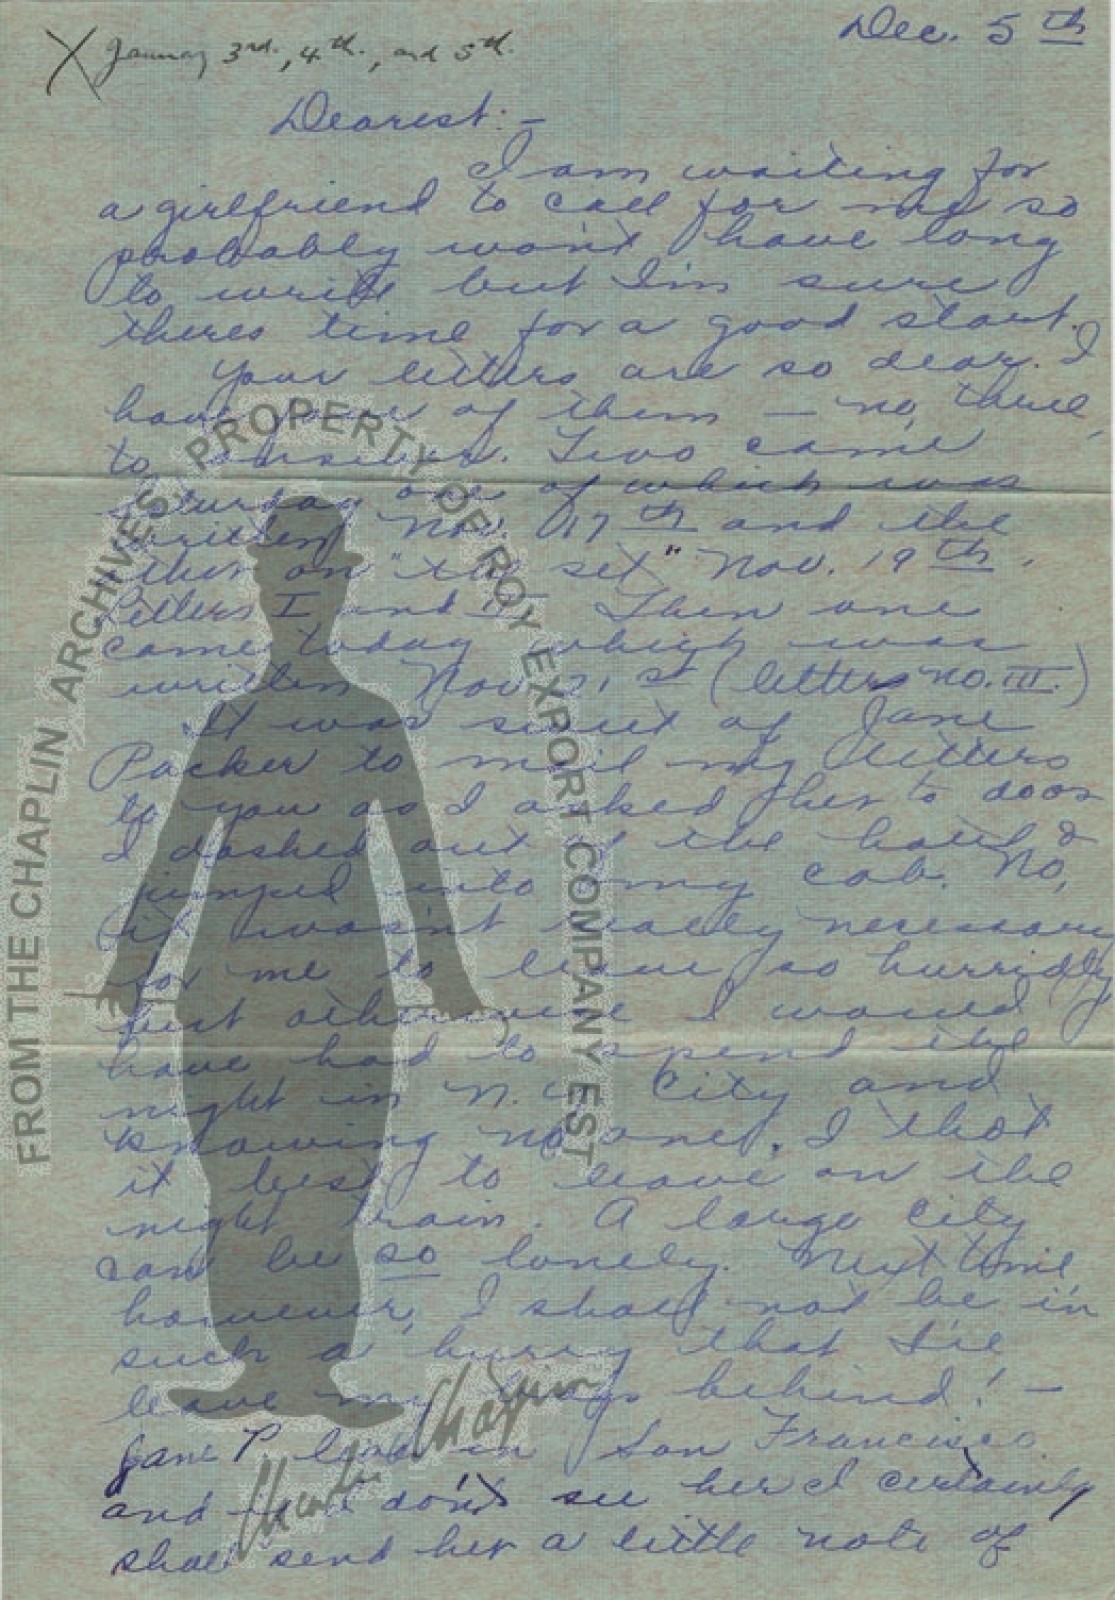 Dec. 5th
X January 3rd., 4th., and 5th.
Dearest:-
I am waiting for
a girlfriend to call for me so
probably won't have long
to write but I'm sure
theres time for a good start.
Your letters are so dear. I
have of them — no, three,
to answer. Two came
Saturday one of which was
written Nov. 17th and the
other on "the set" Nov. 19th.
Letters I and II. Then one
came today which was
written Nov. 21st (letter no. III.)
It was sweet of Jane
Packer to mail my letters
to you as I asked her to doas
I dashed out of the hotel &
jumped into my cab. No,
it wasn't really necessary
for me to leave so hurridly
but otherwise I would
have had to spend the
night in N.Y. City and
knowing no one, I thot
it best to leave on the
night train. A large city
can be so lonely. Next time,
however, I shall not be in
such a hurry that I'le
leave my bags behind! —
Jane P. lives in San Francisco
and if I don't see her I certainly
shall send her a little note of
FROM THE CHAPLIN ARCHIVES PROPERTY OF ROY EXPORT COMPANY EST
Charlie Chaplin